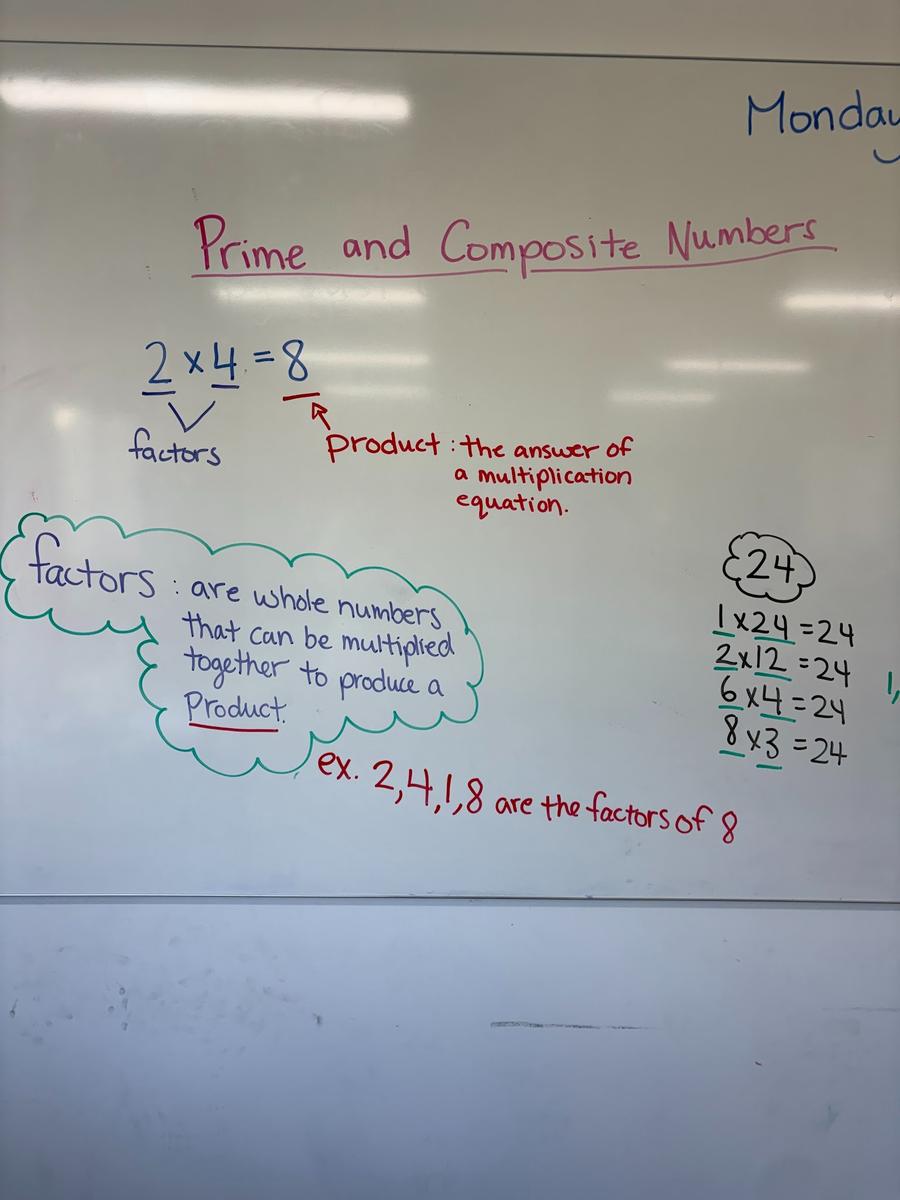 Monday
Prime and Composite Numbers
2 x 4 = 8
factors
product : the answer of
a multiplication
equation.
factors : are whole numbers
that can be multiplied
together to produce a
Product.
ex. 2,4,1,8 are the factors of 8
24
1x24 = 24
2x12 = 24
6 x4 = 24
8 x3 = 24
1,